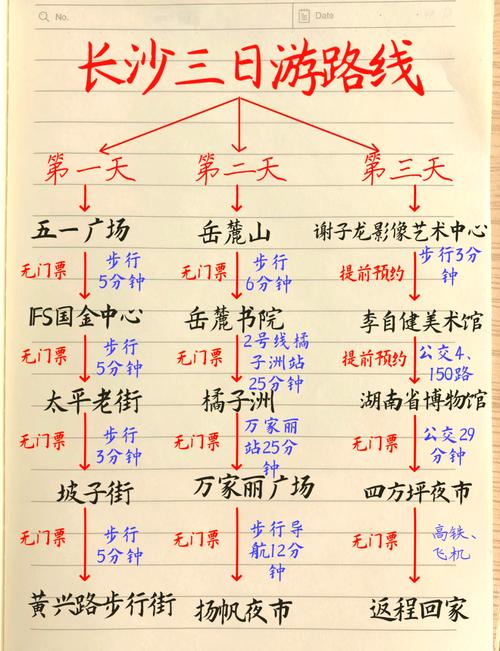 No.
Date
长沙三日游路线
第一天
第二天
第三天
五一广场
无门票
步行
5分钟
IFS国金中心
无门票
步行
5分钟
太平老街
无门票
步行
3分钟
坡子街
无门票
步行
5分钟
黄兴路步行街
岳麓山
无门票
步行
6分钟
岳麓书院
无门票
2号线橘
子洲站
25分钟
橘子洲
无门票
万家丽
站25分
钟
万家丽广场
无门票
步行导
航12分
钟
扬帆夜市
谢子龙影像艺术中心
提前预约
步行3分
钟
李自健美术馆
提前预约
公交4、
150路
湖南省博物馆
无门票
公交29
分钟
四方坪夜市
无门票
高铁、
飞机
返程回家